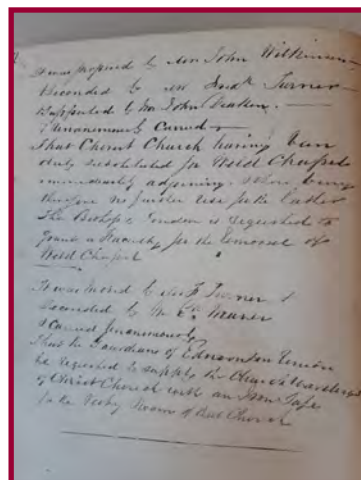 It was proposed by Mr John Wilkinson
Seconded by Mr Fredk Turner
Supported by Mr John Deaken.
& Unanimously Carried
That Christ Church having been
duly substituted for Weld Chapel
immediately adjoining & there being
therefore no further use for the latter
The Bishop of London is requested to
grant a Faculty for the removal of
Weld Chapel
It was moved by Mr F Turner &
Seconded by Mr Ed
& Carried Unanimously
That the Guardians of Edmonton Union
be requested to supply the Church Wardens
of Christ Church with an Iron Safe
for the Vestry Room of that Church